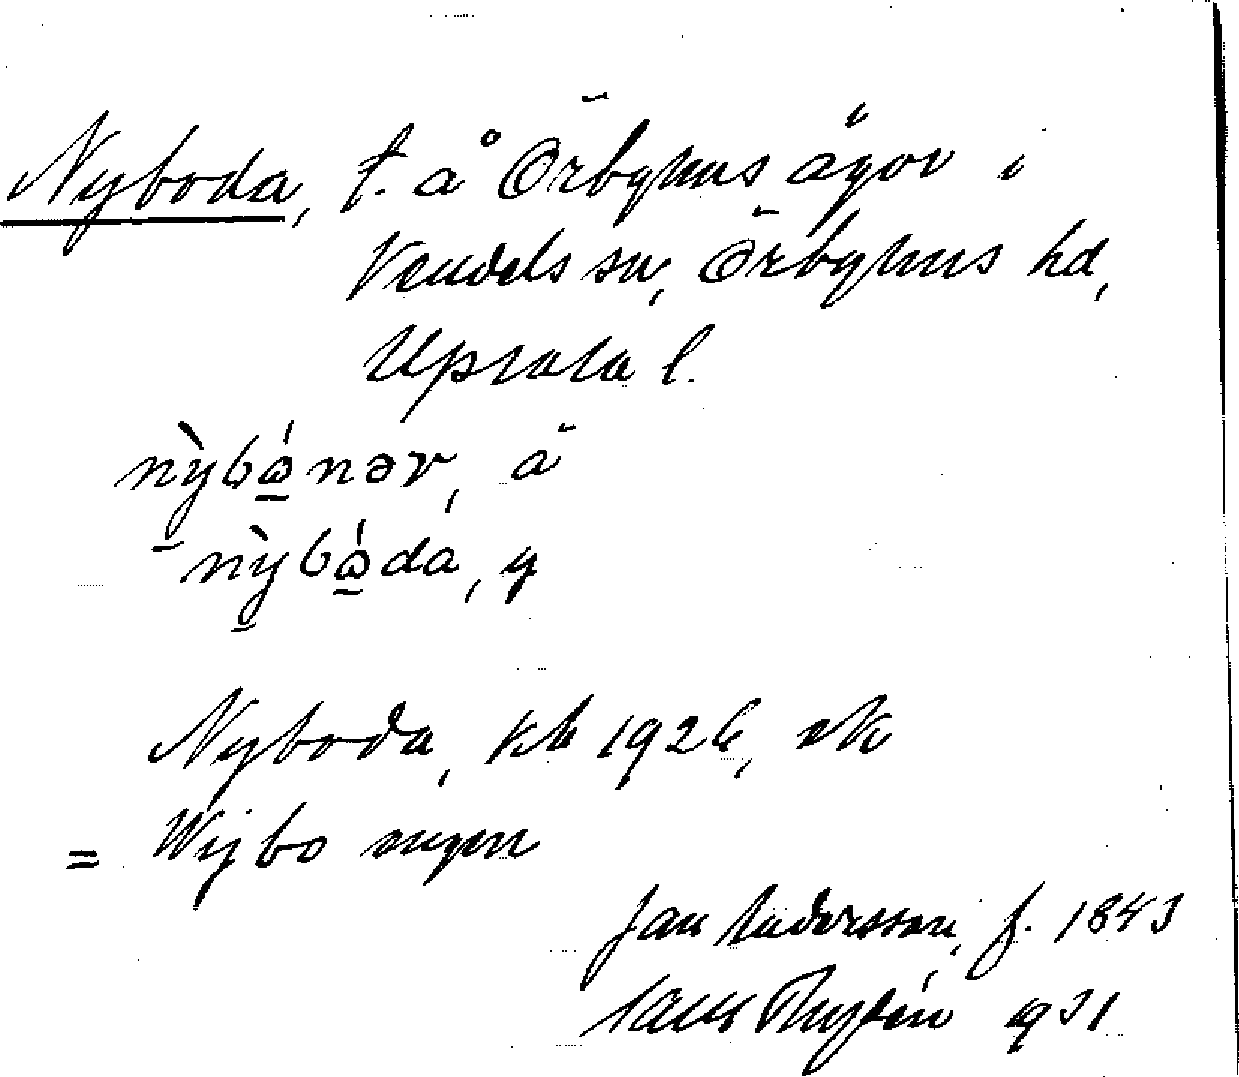 Nyboda, t. å Örbyhus ägor i
Vendels sn, Örbyhus hd,
Upsala l.
nỳbǻnər, ä
nỳbǻda, y
Nyboda, kb 1926, ek
= Nybo
Jan Andersson, f. 1843
Rydén 1931